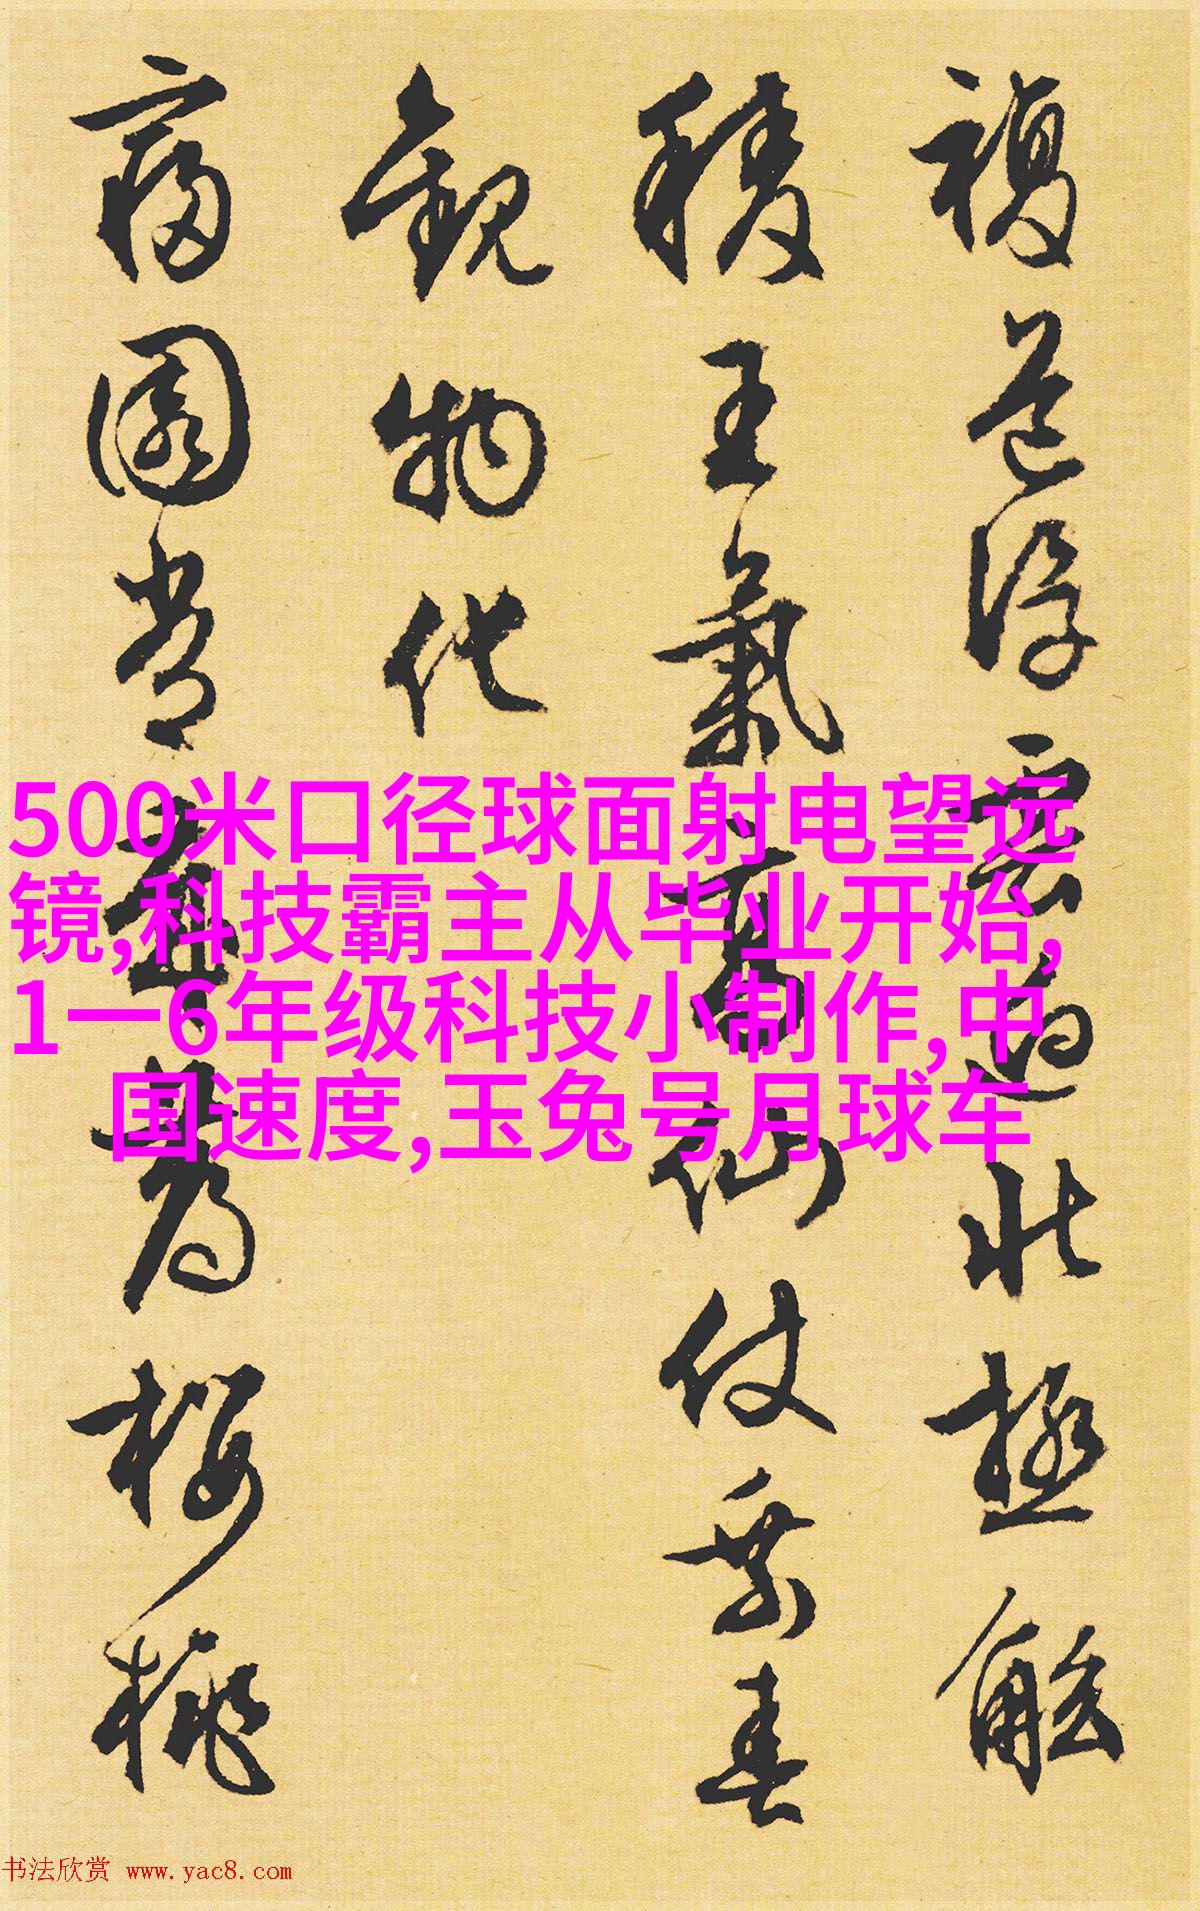 複道浮雲迥北極觚
稜王氣高仙仗乘春
觀物化
寢園常薦櫻桃
500米口径球面射电望远
镜,科技霸主从毕业开始,
1一6年级科技小制作,中
国速度,玉兔号月球车
书法欣赏 www.yac8.com